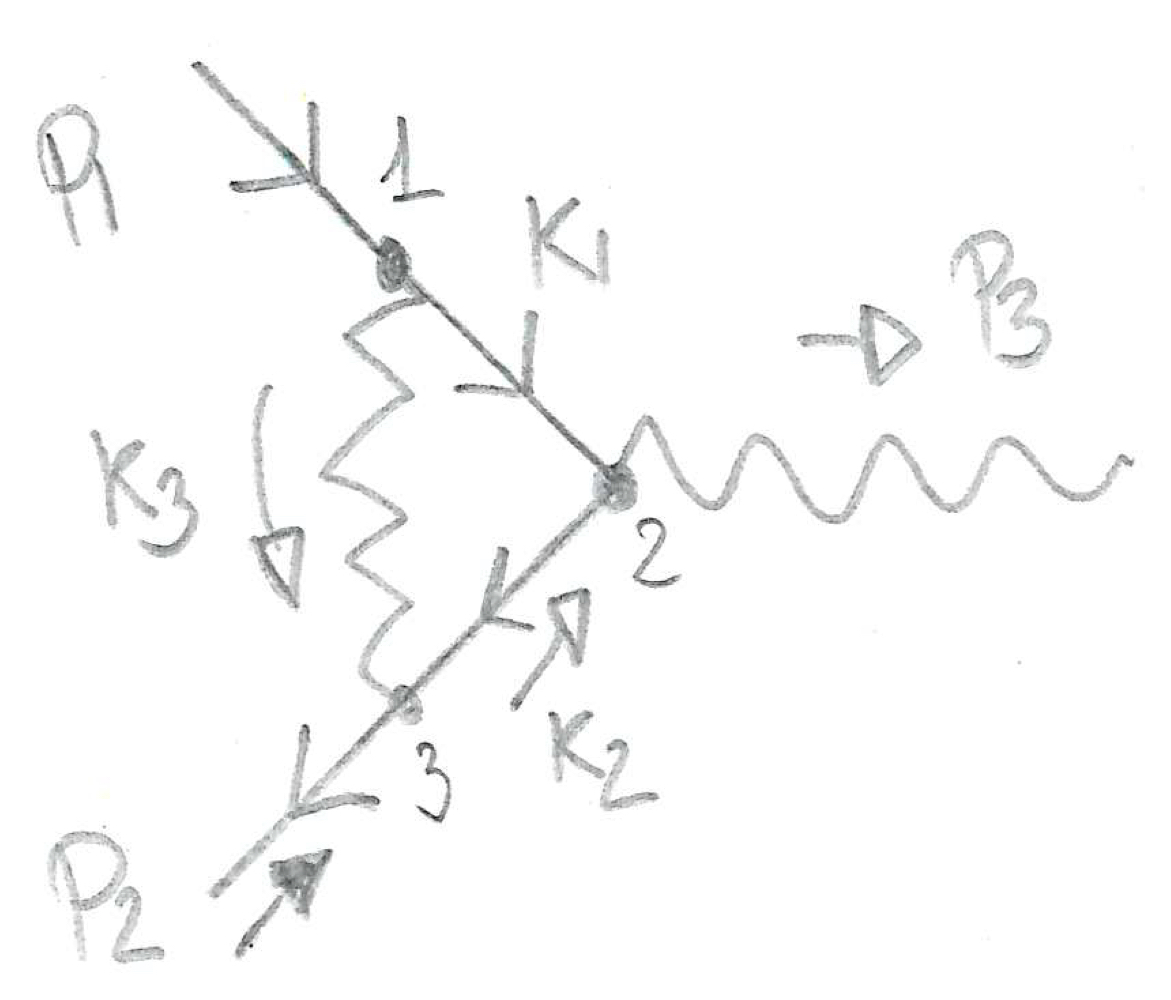 P1
1
K1
P3
K3
2
K2
3
P2